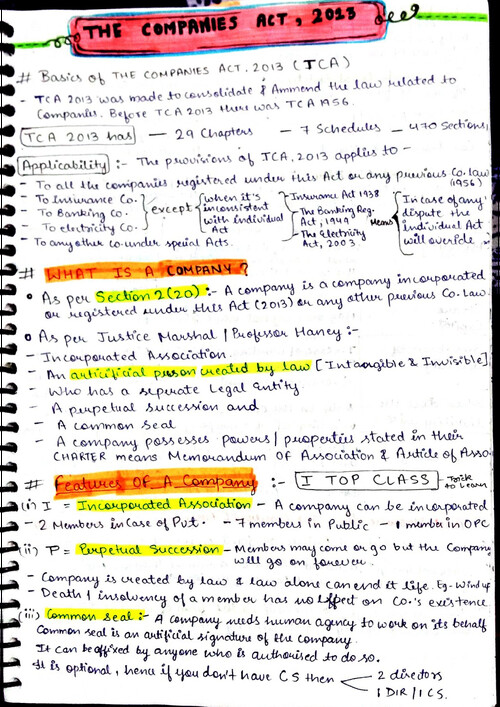 THE COMPANIES ACT, 2013
# Basics of THE COMPANIES ACT, 2013 (TCA)
- TCA 2013 was made to consolidate & Ammend the law related to
Companies. Before TCA 2013 there was TCA 1956.
TCA 2013 has — 29 Chapters — 7 Schedules — 470 Sections
Applicability :- The provisions of TCA, 2013 applies to -
- To all the companies registered under this Act or any previous Co. law (1956)
- To Insurance Co.
- To Banking Co.
- To electricity Co.
except
when it's
inconsistent
with individual
Act
Insurance Act 1938
- The Banking Reg.
Act, 1949
- The Electricity
Act, 2003
Means
In case of any
dispute the
individual Act
will override
- To any other co. under special Acts.
# WHAT IS A COMPANY?
As per Section 2(20) :- A company is a company incorporated
or registered under this Act (2013) or any other previous Co. Law.
As per Justice Marshal / Professor Haney :-
- Incorporated Association
- An artificial person created by law [Intangible & Invisible]
- Who has a seperate Legal Entity
- A perpetual succession and
- A common seal
- A company possesses powers / properties stated in their
CHARTER means Memorandum Of Association & Article of Asso.
# Features OF A Company :- I TOP CLASS - Trick to Learn
(i) I = Incorporated Association - A company can be incorporated
- 2 Members in Case of Pvt. - 7 members in Public - 1 member in OPC
(ii) P = Perpetual Succession - Members may come or go but the Company
will go on forever.
- Company is created by law & law alone can end it life. Eg- Wind up
- Death & insolvency of a member has no effect on Co.'s existence
(iii) Common seal :- A company needs human agency to work on its behalf
Common seal is an artificial signature of the company.
It can be affixed by anyone who is authorised to do so.
It is optional, hence if you don't have CS then
2 directors
1 DIR / 1 CS.